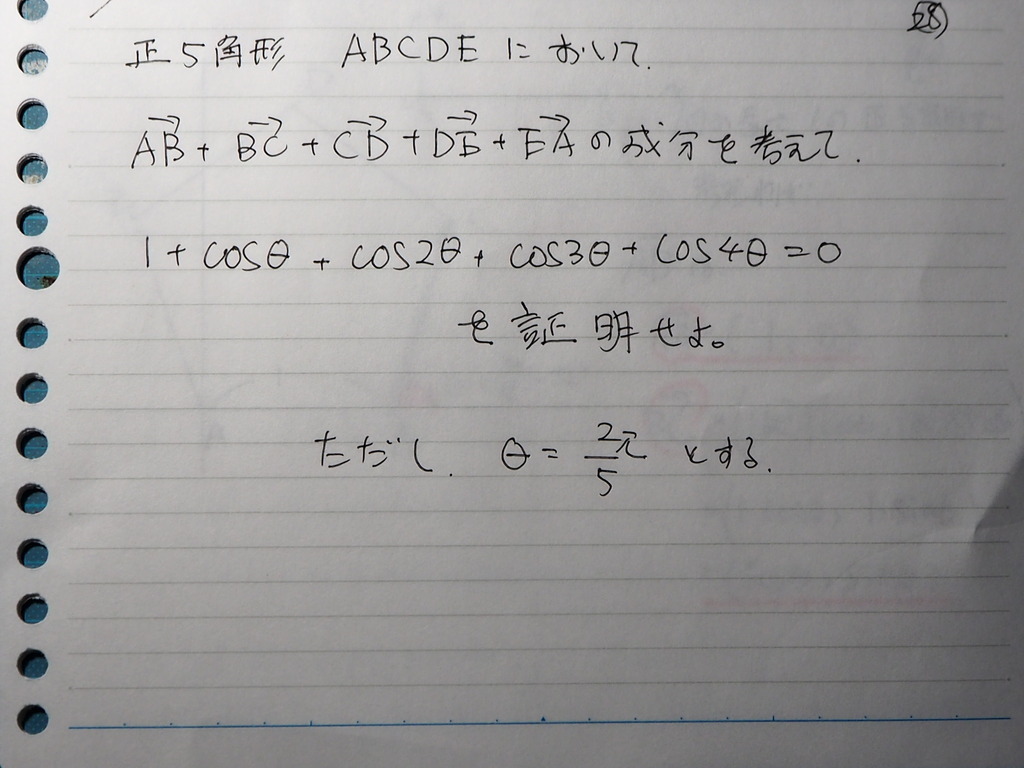 58)
正5角形 ABCDE において.
AB→ + BC→ + CD→ + DE→ + EA→ の成分を考えて.
1 + cosθ + cos2θ + cos3θ + cos4θ = 0
を証明せよ。
ただし. θ = 2π/5 とする.